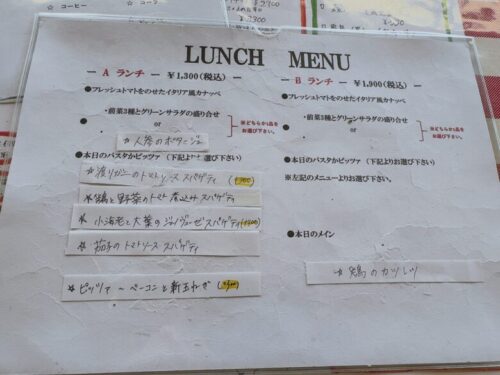 ☆ コーヒー
LUNCH MENU
― A ランチ ― ￥1,300(税込)
●フレッシュトマトをのせたイタリア風カナッペ
・前菜3種とグリーンサラダの盛り合せ
●
or
※どちらか1品を
お選び下さい。
☆ 人参のポタージュ
●本日のパスタかピッツァ (下記よりお選び下さい)
☆ 渡りガニのトマトソース スパゲティ
☆ 鶏と野菜のトマト煮込み スパゲティ
☆ 小海老と大葉のジェノヴェーゼ スパゲティ
☆ 茄子のトマトソース スパゲティ
☆ ピッツァ ～ ベーコンと新玉ねぎ
― B ランチ ― ￥1,900(税込)
●フレッシュトマトをのせたイタリア風カナッペ
・前菜3種とグリーンサラダの盛り合せ
●
or
※どちらか1品を
お選び下さい。
●本日のパスタかピッツァ (下記よりお選び下さい)
※左記のメニューよりお選び下さい。
●本日のメイン
☆ 鶏のカツレツ